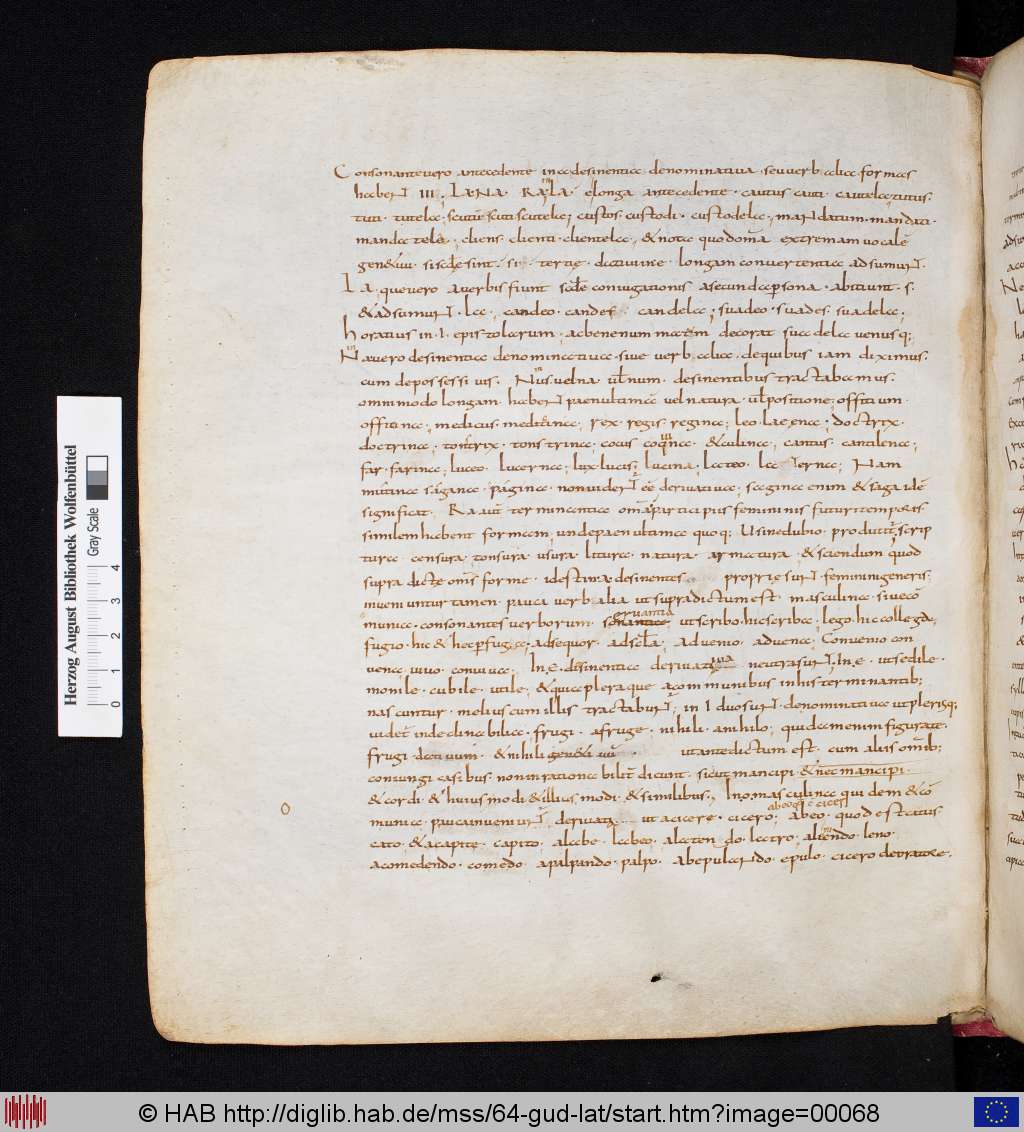 Consonante vero antecedente in a desinentia denominativa seu verbalia formas
habent III. LA NA RA, LA e longa antecedente cautus cauti cautela, tutus
tuti tutela, scutum scuti scutela, custos custodi custodela, mandatum mandati
mandatela, cliens clienti clientela, & nota quod oma extremam vocale
gen&ivi si sit longam convertentia adsumunt.
La que vero a verbis fiunt scdae coniugationis a secunda persona abitiunt s
& adsumunt la, candeo candes candela, suadeo suades suadela,
horatius in I epistolarum, ac bene nummatum decorat suadela venusq;
Na vero desinentia denominativa sive verbalia de quibus iam diximus
cum de possessivis Nus vel na vel num desinentibus tractabamus
ommimodo longam habent paenultimam vel natura vel positione, offitium
officina, medicus medicina, rex regis regina, leo leaena, doctrix
doctrina, tonstrix tonstrina, cocus coquina & culina, cantus cantilena,
far farina, luceo lucerna, lux lucis, lucina, lateo laterna, Nam
sagana pagina non videntur ee derivativa, sagina enim & saga ide
significat. Ra aut terminantia participiis femininis futuri temporis
similem habent formam, unde paenultimam quoq; U sine dubio producit, scrip
tura censura tonsura usura litura natura armatura & sciendum quod
supra dicte oms forme id est in a desinentes proprie sunt feminini generis
inveniuntur tamen pauca verbalia ut supra dictum est masculina sive co
munia consonantis verborum servantia ut scribo hic scriba, lego hic collega,
fugio hic & haec perfuga, adsequor adscla advenio advena, Convenio con
vena vivo conviva, In e desinentia derivativa neutra sunt, In e ut sedile
monile cubile utile, & quia pleraque a communibus in his terminantib;
nascuntur melius cum illis tractabuntur, in I duo sunt denominativa ut plerisq;
videt indeclinabilia frugi a fruge nihili a nihilo, quidam enim figurate
frugi dativum & nihili gen&ivum ut ante dictum est cum aliis omib;
coniungi casibus non irrationabiliter dicunt sicut mancipi & nec mancipi
& cordi & huiusmodi & illius modi & similibus, In o masculina quidem & co
munia pauca inveniuntur derivativa ut a cicere cicero, abeo quod est catus
cato & a capite capito, a labe labeo, a latendo latro, a liendo leno
a comedendo comedo a palpando palpo ab epulando epulo cicero de oratore

Herzog August Bibliothek Wolfenbüttel
Gray Scale
0 1 2 3 4
© HAB http://diglib.hab.de/mss/64-gud-lat/start.htm?image=00068